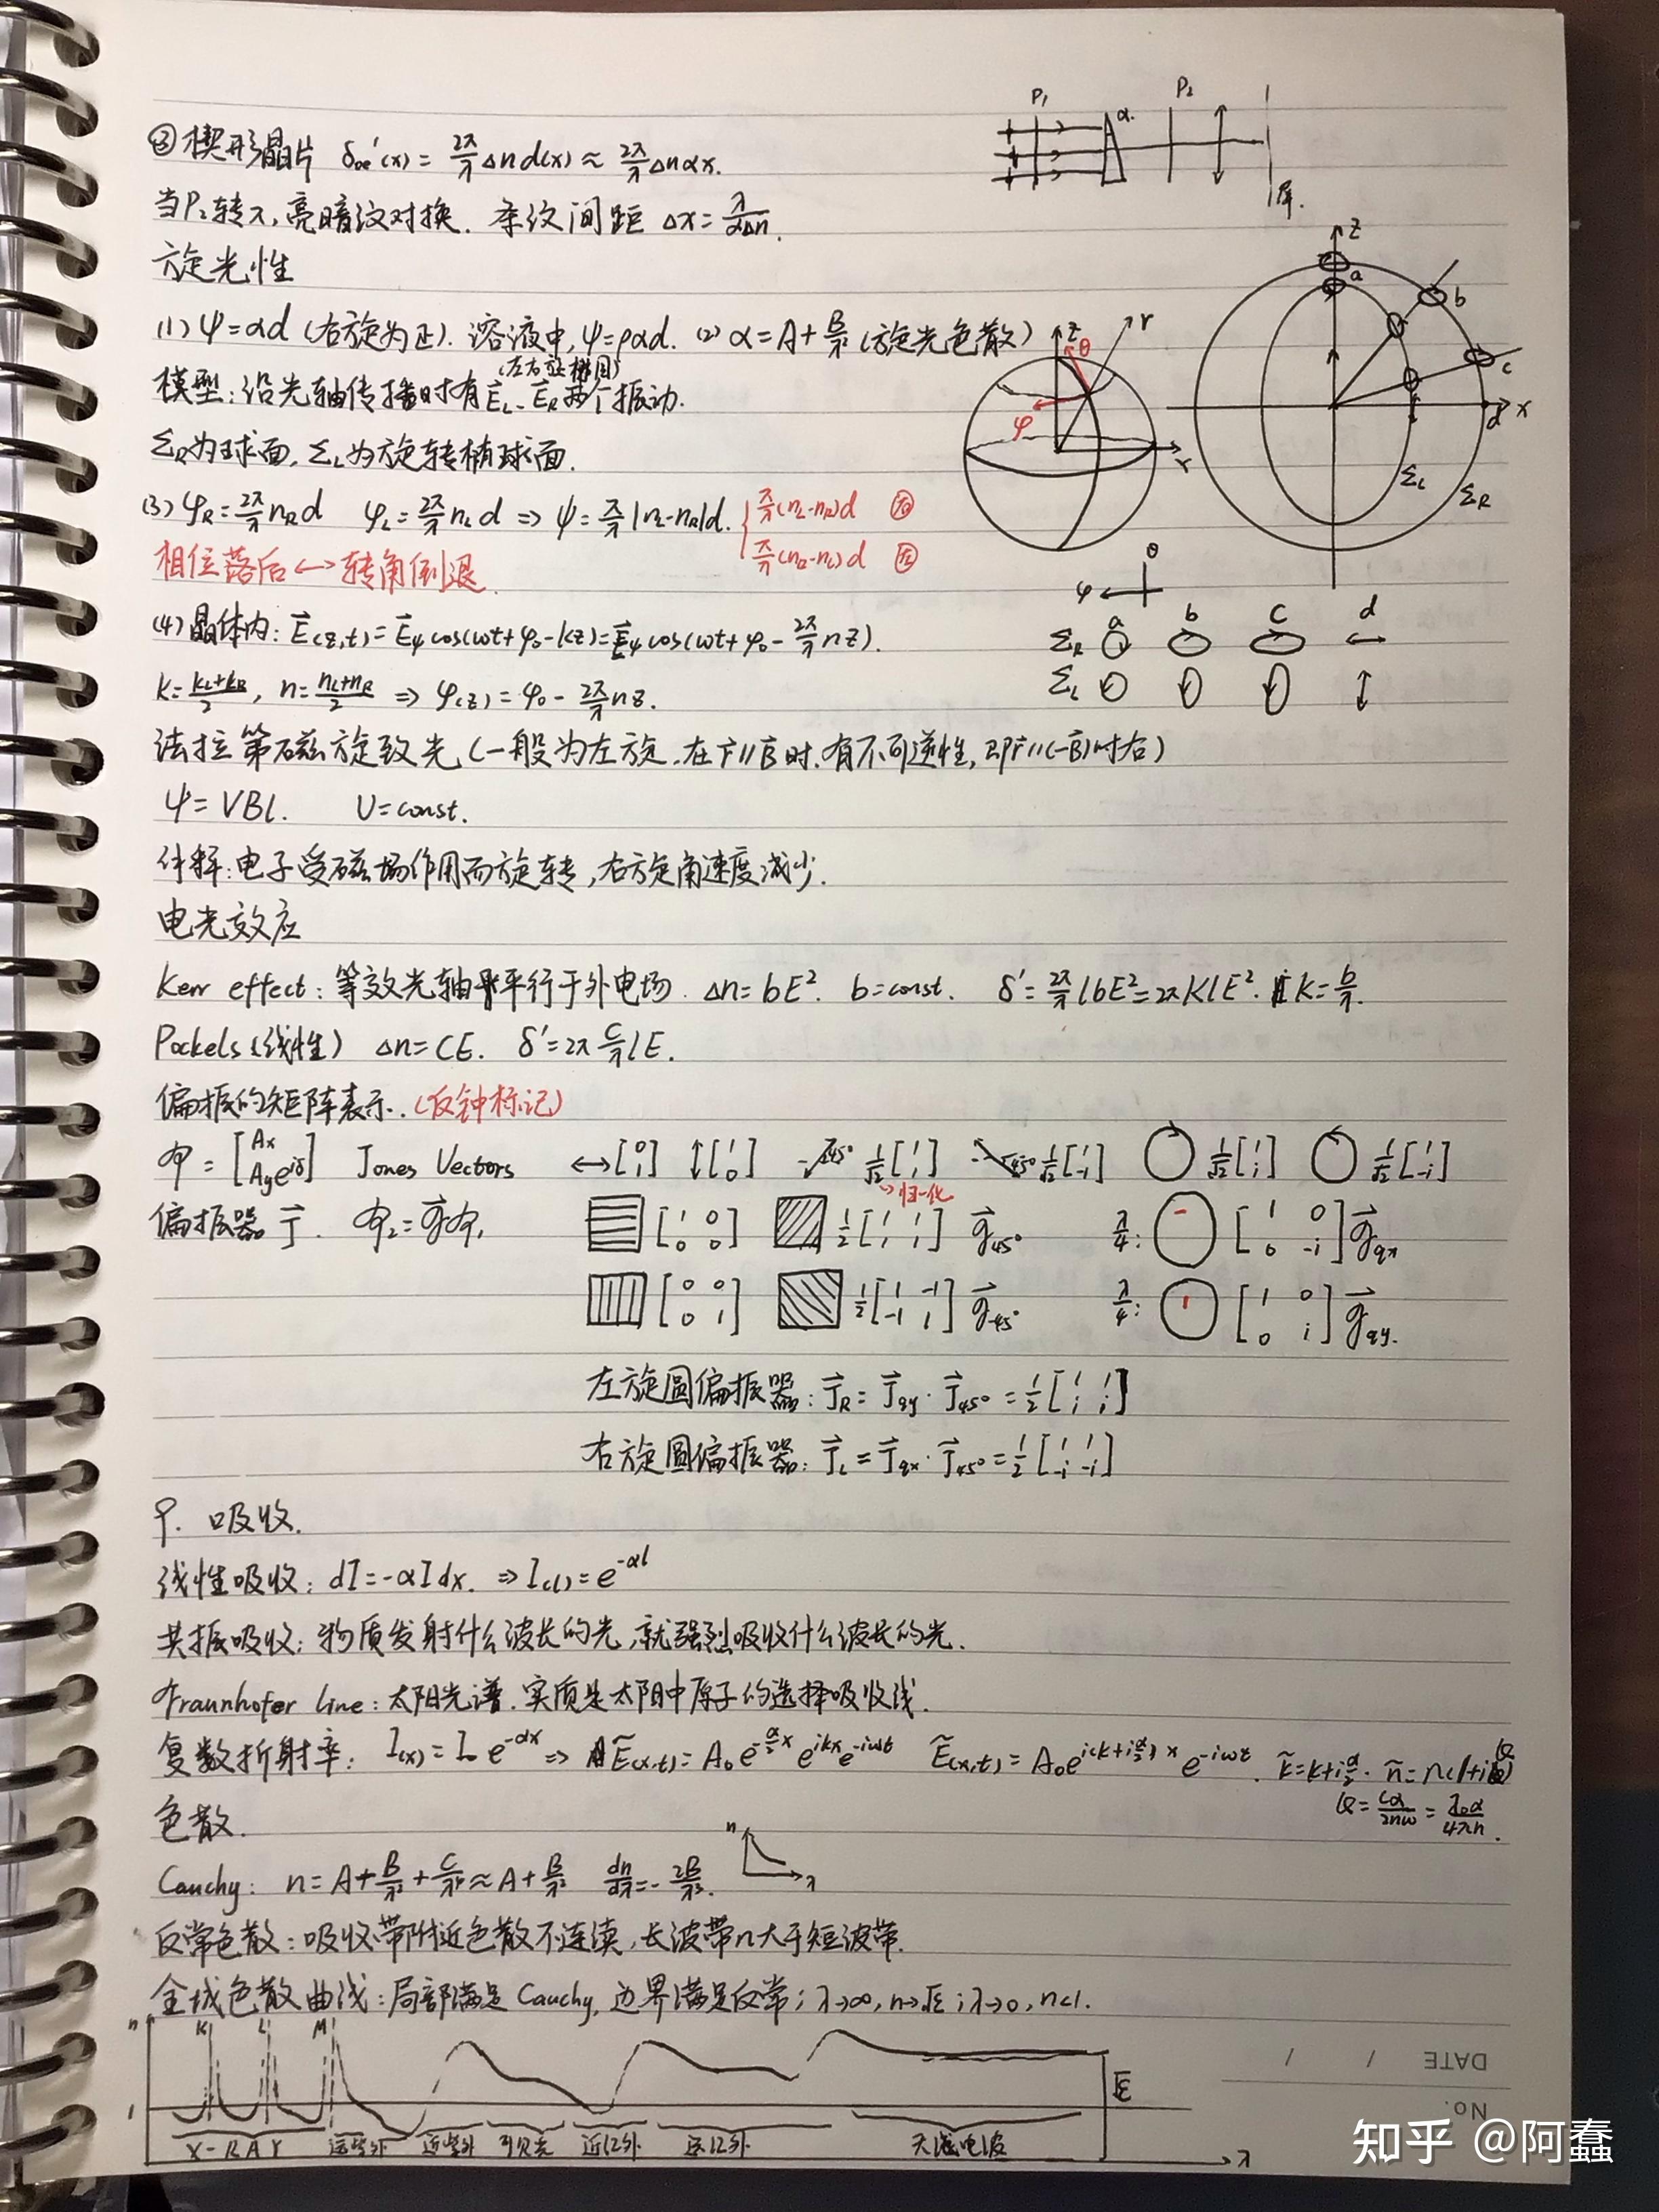 ③楔形晶片 δoe'(x) = 2π/λ Δn d(x) ≈ 2π/λ Δnαx.
P₁ α P₂ 屏.
当P₂转π/2,亮暗纹对换. 条纹间距 Δx = λ/(αΔn).
旋光性
(1) ψ=αd (右旋为正). 溶液中, ψ=ραd. (2) α=A+B/λ² (旋光色散)
(左右旋椭圆)
模型:沿光轴传播时有E⃗L、E⃗R两个振动.
ΣR为球面, ΣL为旋转椭球面.
z θ r φ r
z a b c d x ΣL ΣR
(3) φR=2π/λ nR d φL=2π/λ nL d ⇒ ψ=π/λ |nL-nR|d. { π/λ (nL-nR)d 右
π/λ (nR-nL)d 左
相位落后↔转角倒退.
(4) 晶体内: E⃗(z,t) = E⃗ψ cos(ωt+φ₀-kz) = E⃗ψ cos(ωt+φ₀ - 2π/λ nz).
θ φ
a b c d
ΣR
ΣL
k=(kL+kR)/2, n=(nL+nR)/2 ⇒ φ(z) = φ₀ - 2π/λ nz.
法拉第磁旋致光 (一般为左旋.在r⃗//B⃗时.有不可逆性,即r⃗//(-B⃗)时右)
ψ=VBl. U=const.
解释:电子受磁场作用而旋转,右旋角速度减少.
电光效应
Kerr effect: 等效光轴平行于外电场. Δn=bE². b=const. δ'=2π/λ lbE²=2πKlE². K=b/λ.
Pockels (线性) Δn=CE. δ'=2π C/λ lE.
偏振的矩阵表示. (反钟标记)
[Ax Aye^iδ] Jones Vectors ↔[0 1] ↕[1 0] 45° 1/√2 [1 1] 45° 1/√2 [1 -i] 1/√2 [1 i] 1/√2 [1 -i]
→归一化
偏振器 J⃗. [1 0 0 0] 1/2 [1 1 1 1] g⃗45° λ/4: [1 0 0 -i] g⃗qx
[0 0 0 1] 1/2 [1 -1 -1 1] g⃗-45° λ/4: [1 0 0 i] g⃗qy.
左旋圆偏振器: J⃗R = J⃗qy · J⃗45° = 1/2 [1 1 i i]
右旋圆偏振器: J⃗L = J⃗qx · J⃗45° = 1/2 [1 1 -i -i]
9. 吸收.
线性吸收: dI=-αI dx. ⇒ I(l) = e^-αl
共振吸收: 物质发射什么波长的光,就强烈吸收什么波长的光.
Fraunhofer line: 太阳光谱.实质是太阳中原子的选择吸收线.
复数折射率: I(x) = I₀ e^-αx ⇒ Ẽ(x,t) = A₀ e^-α/2 x e^ikx e^-iωt Ẽ(x,t) = A₀e^i(k+iα/2)x e^-iωt. k̃=k+iα/2. ñ=n(1+iκ)
κ=cα/2nω = λ₀α/4πn.
色散.
Cauchy: n=A+B/λ²+C/λ⁴≈A+B/λ² dn/dλ=-2B/λ³. n λ
反常色散:吸收带附近色散不连续,长波带n大于短波带.
全域色散曲线:局部满足 Cauchy, 边界满足反常; λ→∞, n→√ε; λ→0, n<1.
n K L M
1 √ε
X-RAY 远紫外 近紫外 可见光 近红外 远红外 无线电波 λ
DATE / /
No.
知乎 @阿蠢